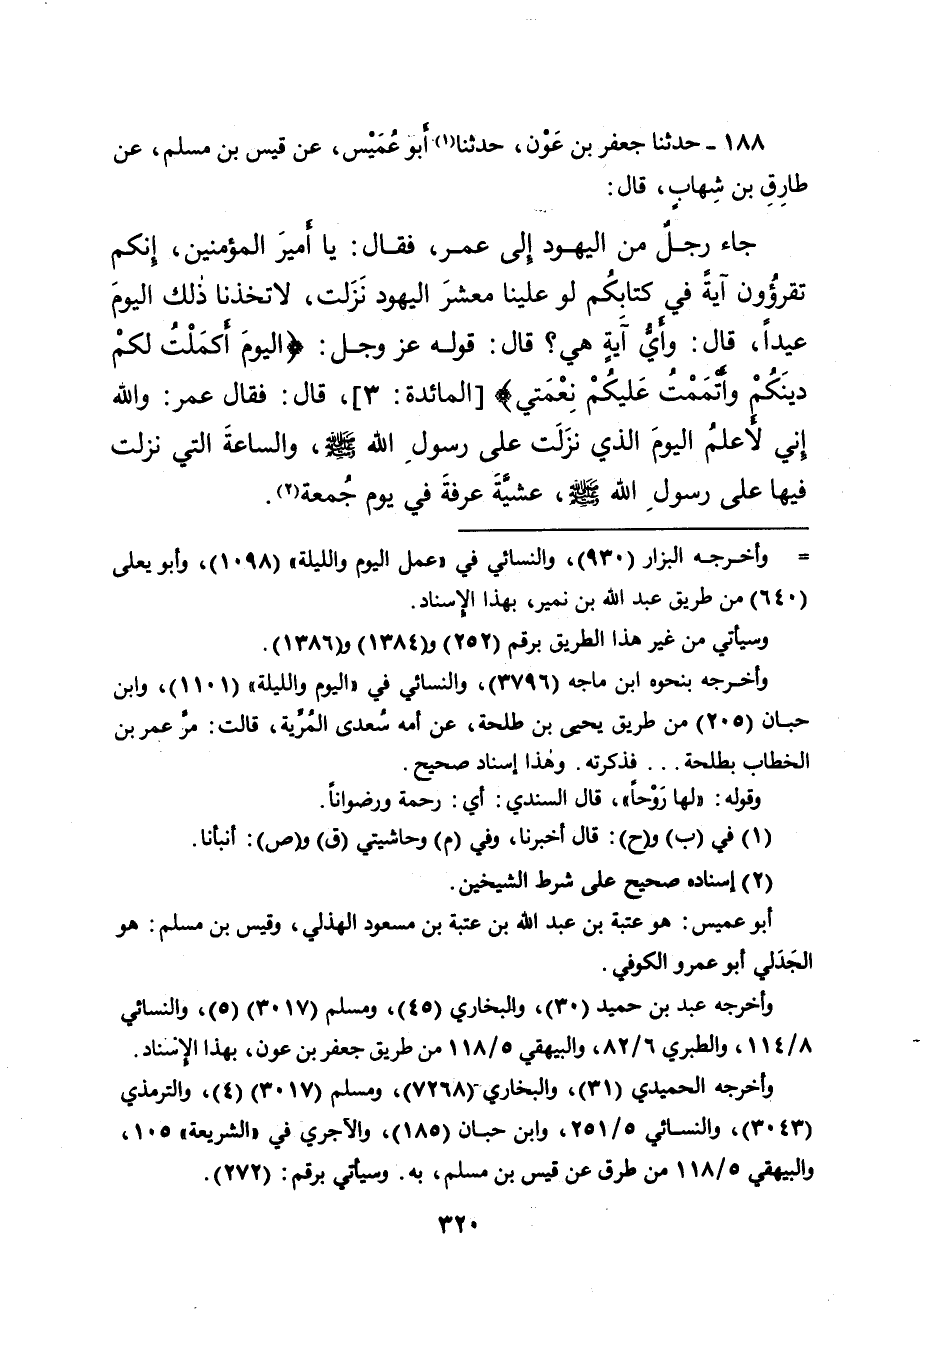 ١٨٨ ـ حدثنا جعفر بن عَوْن، حدثنا(١) أَبو عُمَيْس، عن قيس بن مسلم، عن
طارِقِ بن شِهابٍ، قال:
جاء رجلٌ من اليهود إِلى عمر، فقال: يا أَميرَ المؤمنين، إِنكم
تقرؤُون آيةً في كتابِكُم لو علينا معشرَ اليهود نَزَلت، لاتخذنا ذٰلك اليومَ
عيداً، قال: وأَيُّ آيةٍ هي؟ قال: قوله عز وجل: ﴿اليومَ أَكمَلْتُ لكمْ
دينَكُمْ وأَتْمَمْتُ عَليكُمْ نِعْمَتي﴾ [المائدة: ٣]، قال: فقال عمر: والله
إِني لَأَعلمُ اليومَ الذي نزَلَت على رسول الله ﷺ، والساعةَ التي نزلت
فيها على رسول الله ﷺ، عشيَّةَ عرفةَ في يوم جُمعة(٢).
= وأخرجه البزار (٩٣٠)، والنسائي في «عمل اليوم والليلة» (١٠٩٨)، وأبو يعلى
(٦٤٠) من طريق عبد الله بن نمير، بهذا الإسناد.
وسيأتي من غير هذا الطريق برقم (٢٥٢) و(١٣٨٤) و(١٣٨٦).
وأخرجه بنحوه ابن ماجه (٣٧٩٦)، والنسائي في «اليوم والليلة» (١١٠١)، وابن
حبان (٢٠٥) من طريق يحيى بن طلحة، عن أمه سُعدى المُرِّية، قالت: مرَّ عمر بن
الخطاب بطلحة... فذكرته. وهٰذا إسناد صحيح.
وقوله: «لها رَوْحاً»، قال السندي: أي: رحمة ورضواناً.
(١) في (ب) و(ح): قال أخبرنا، وفي (م) وحاشيتي (ق) و(ص): أنبأنا.
(٢) إسناده صحيح على شرط الشيخين.
أبو عميس: هو عتبة بن عبد الله بن عتبة بن مسعود الهذلي، وقيس بن مسلم: هو
الجَدَلي أبو عمرو الكوفي.
وأخرجه عبد بن حميد (٣٠)، والبخاري (٤٥)، ومسلم (٣٠١٧) (٥)، والنسائي
١١٤/٨، والطبري ٨٢/٦، والبيهقي ١١٨/٥ من طريق جعفر بن عون، بهذا الإسناد.
وأخرجه الحميدي (٣١)، والبخاري (٧٢٦٨)، ومسلم (٣٠١٧) (٤)، والترمذي
(٣٠٤٣)، والنسائي ٢٥١/٥، وابن حبان (١٨٥)، والآجري في «الشريعة» ١٠٥،
والبيهقي ١١٨/٥ من طرق عن قيس بن مسلم، به. وسيأتي برقم: (٢٧٢).
٣٢٠